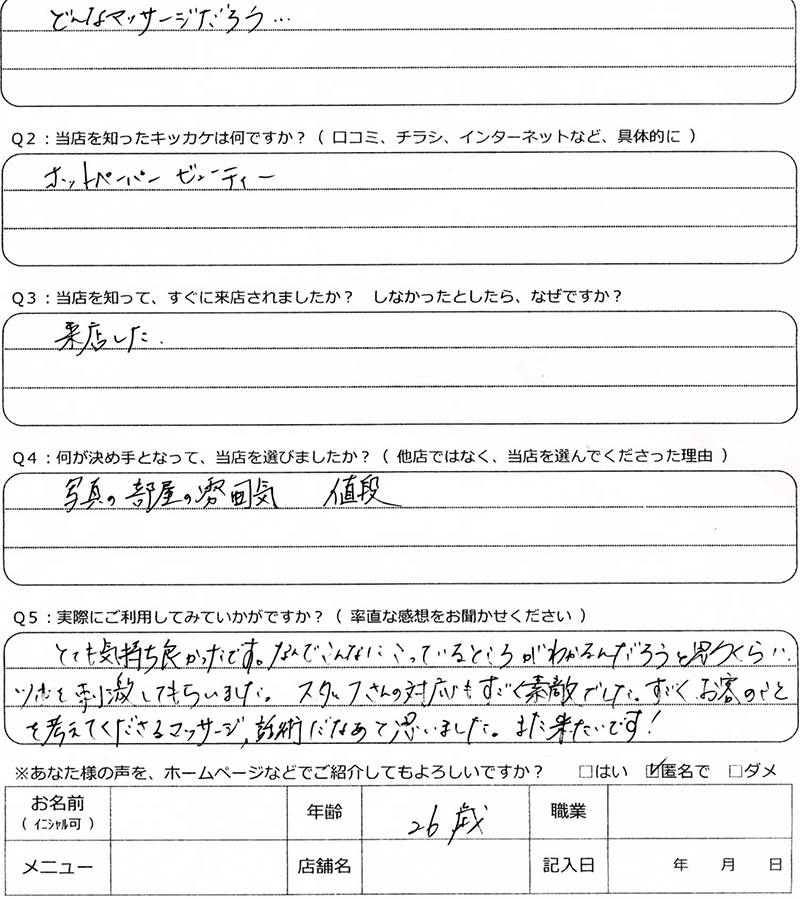 どんなマッサージだろう…
Q2：当店を知ったキッカケは何ですか？（ 口コミ、チラシ、インターネットなど、具体的に ）
ホットペーパー ビューティー
Q3：当店を知って、すぐに来店されましたか？ しなかったとしたら、なぜですか？
来店した.
Q4：何が決め手となって、当店を選びましたか？（ 他店ではなく、当店を選んでくださった理由 ）
写真の部屋の雰囲気 値段
Q5：実際にご利用してみていかがですか？（ 率直な感想をお聞かせください ）
とても気持ち良かったです。なんでこんなにこっているところがわかるんだろうと思うくらい
ツボを刺激してもらいました。スタッフさんの対応もすごく素敵でした。すごくお客のこと
を考えてくださるマッサージ、話術だなあて思いました。また来たいです！
※あなた様の声を、ホームページなどでご紹介してもよろしいですか？ □はい ☑匿名で □ダメ
お名前 年齢 26歳 職業
（ イニシャル可 ）
メニュー 店舗名 記入日 年 月 日